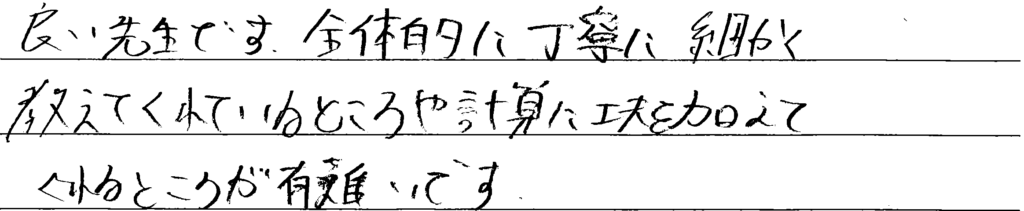 良い先生です. 全体的に丁寧に細かく
教えてくれているところや計算に工夫を加えて
くれるところが有難いです.